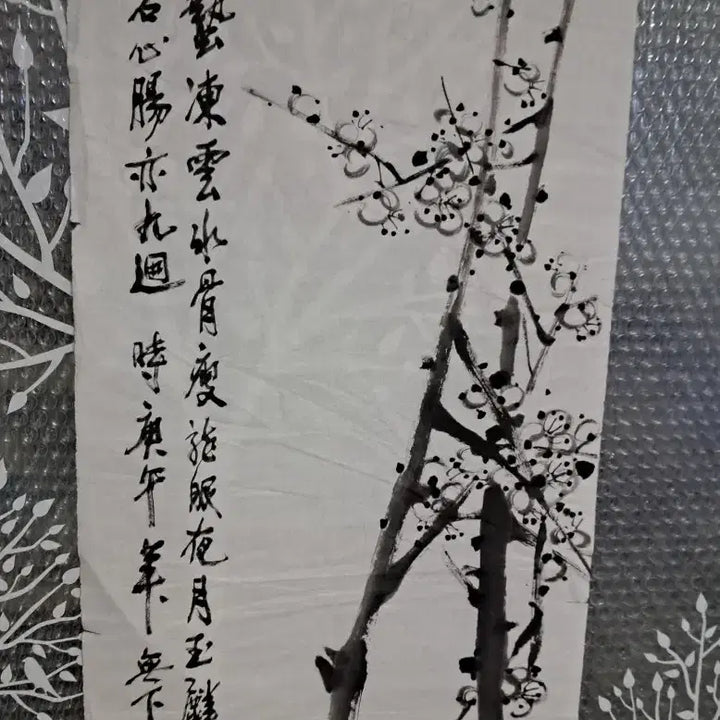 蟄凍雲冰骨瘦龍眠夜月玉麟
石心腸亦九迴 時庚午年 無下